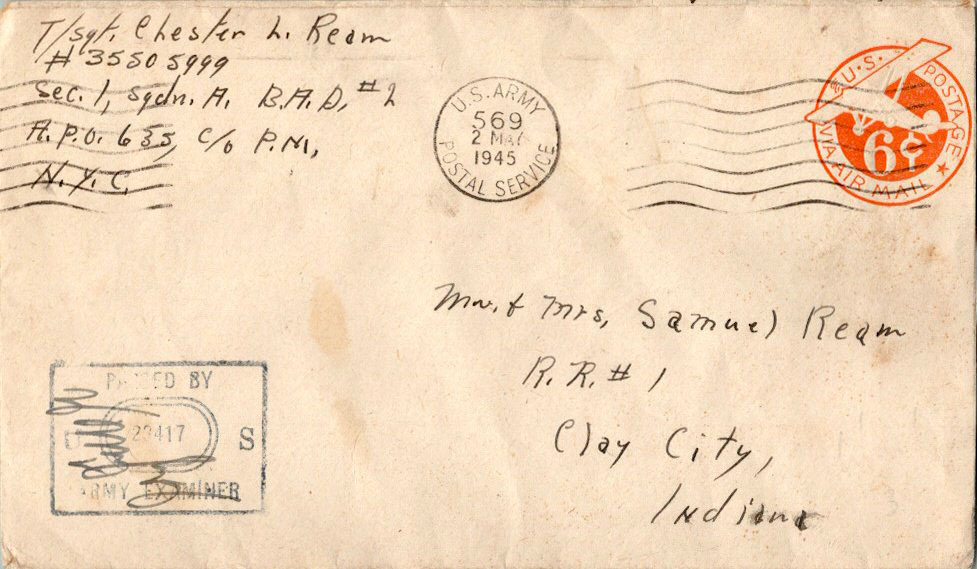 T/sgt. Chester L. Ream
# 35505999
Sec. 1, Sqdn. A. B.A.D. #2
A.P.O. 635, c/o P.M.,
N.Y.C.
U.S. ARMY
569
2 MAR
1945
POSTAL SERVICE
U.S. POSTAGE
6¢
VIA AIR MAIL
Mr. & Mrs, Samuel Ream
R.R. # 1
Clay City,
Indiana
PASSED BY
S
ARMY EXAMINER